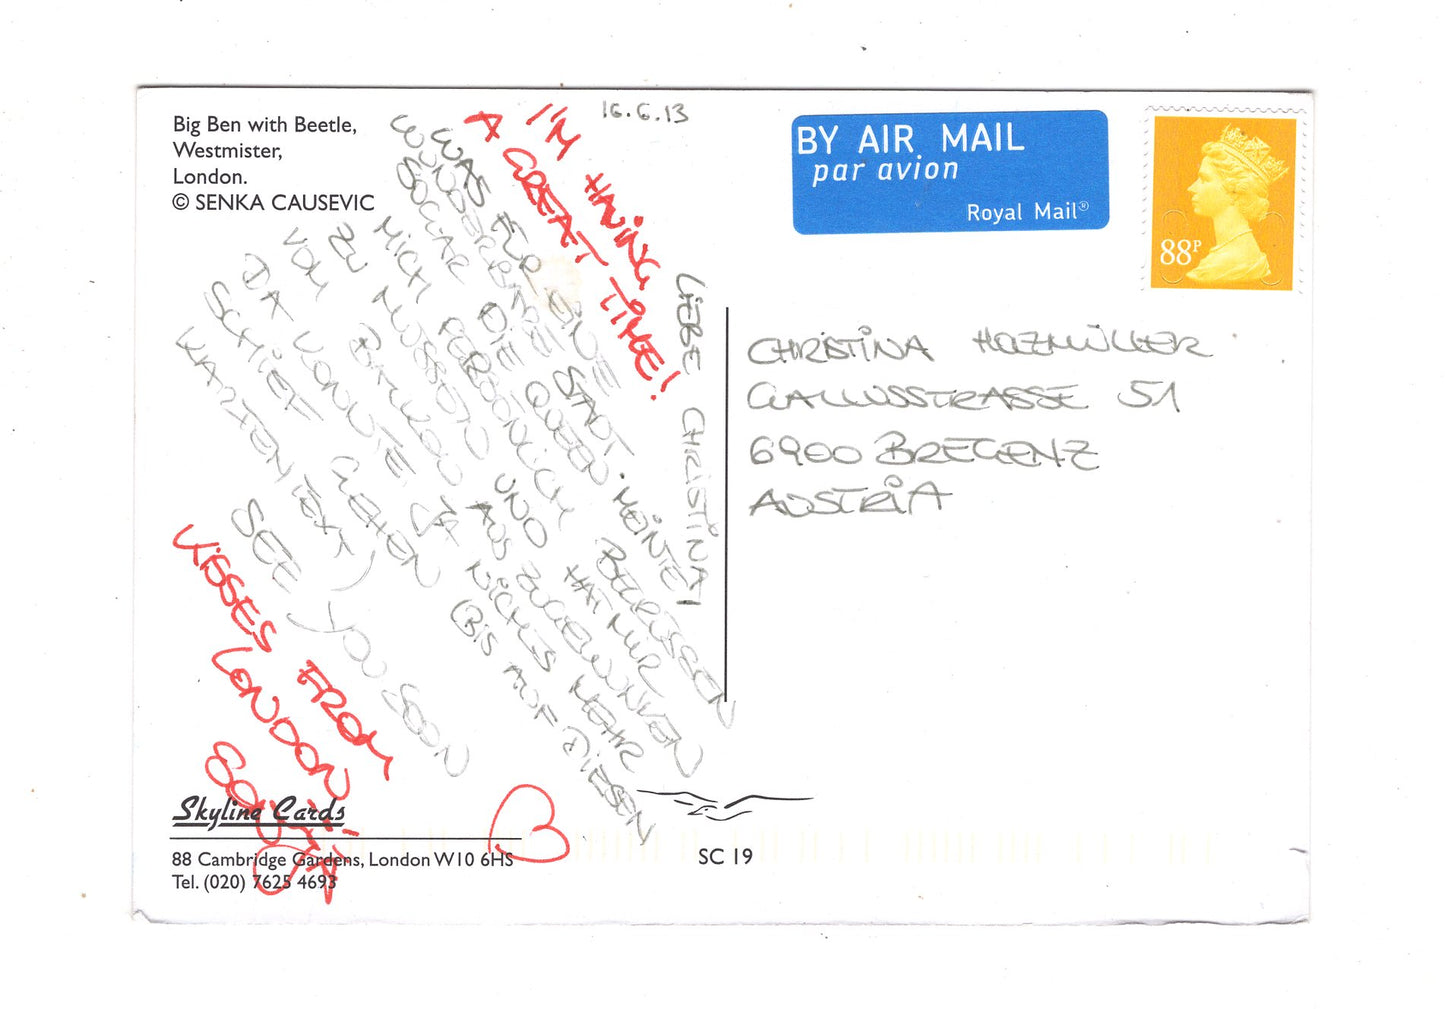 Big Ben with Beetle,
Westmister,
London.
© SENKA CAUSEVIC
16.6.13
I'M HAVING
A GREAT TIME!
LIEBE CHRISTINA!
WAS FÜR EINE
WUNDERBARE STADT. MEINTE
SOGAR DIE QUEEN
MICH PERSÖNLICH BEGRÜSSEN
ZU MÜSSEN UND HAT MIR
VOM AUS ZUGEWUNKEN
DA KONNTE JA NICHTS MEHR
SCHIEF GEHEN (BIS AUF DIESEN
KARTENTEXT)
SEE YOU SOON
KISSES FROM
LONDON
BY AIR MAIL
par avion
Royal Mail®
88P
CHRISTINA HOLZMÜLLER
GALLUSSTRASSE 51
6900 BREGENZ
AUSTRIA
Skyline Cards
88 Cambridge Gardens, London W10 6HS
Tel. (020) 7625 4693
SC 19